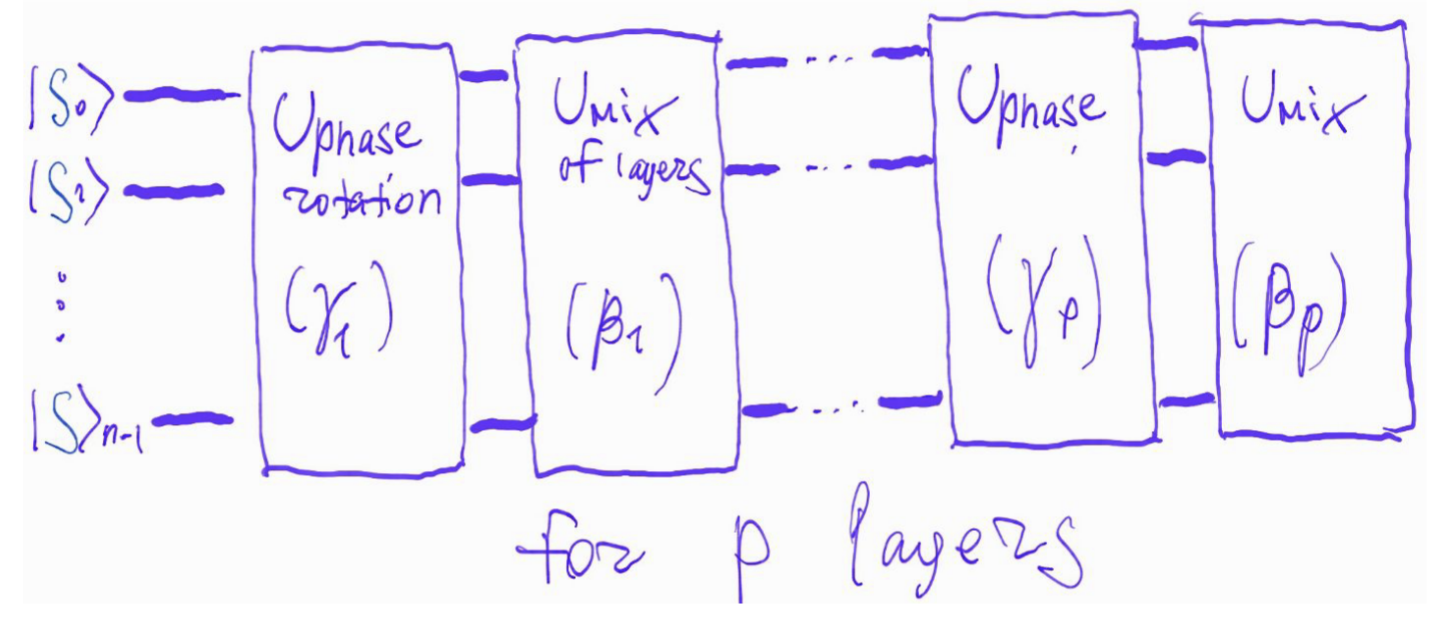 |S₀⟩
U phase rotation (γ₁)
U mix of layers (β₁)
...
U phase (γ_p)
U mix (β_p)
|S₁⟩
...
⋮
|S⟩ₙ₋₁
...
for p layers